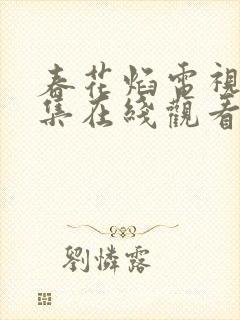 春花焰電視
集在綫觀看
劉憐露